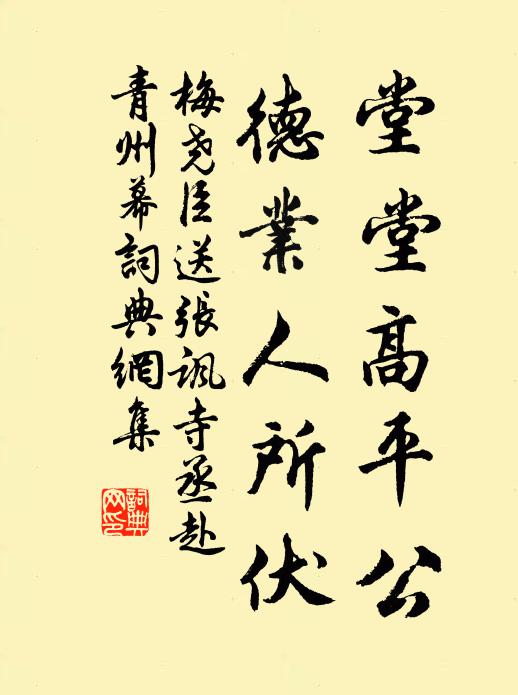 堂堂高平公
德業人所伏
梅堯臣送張諷寺丞赴
青州幕詞典網集
詞典
网印